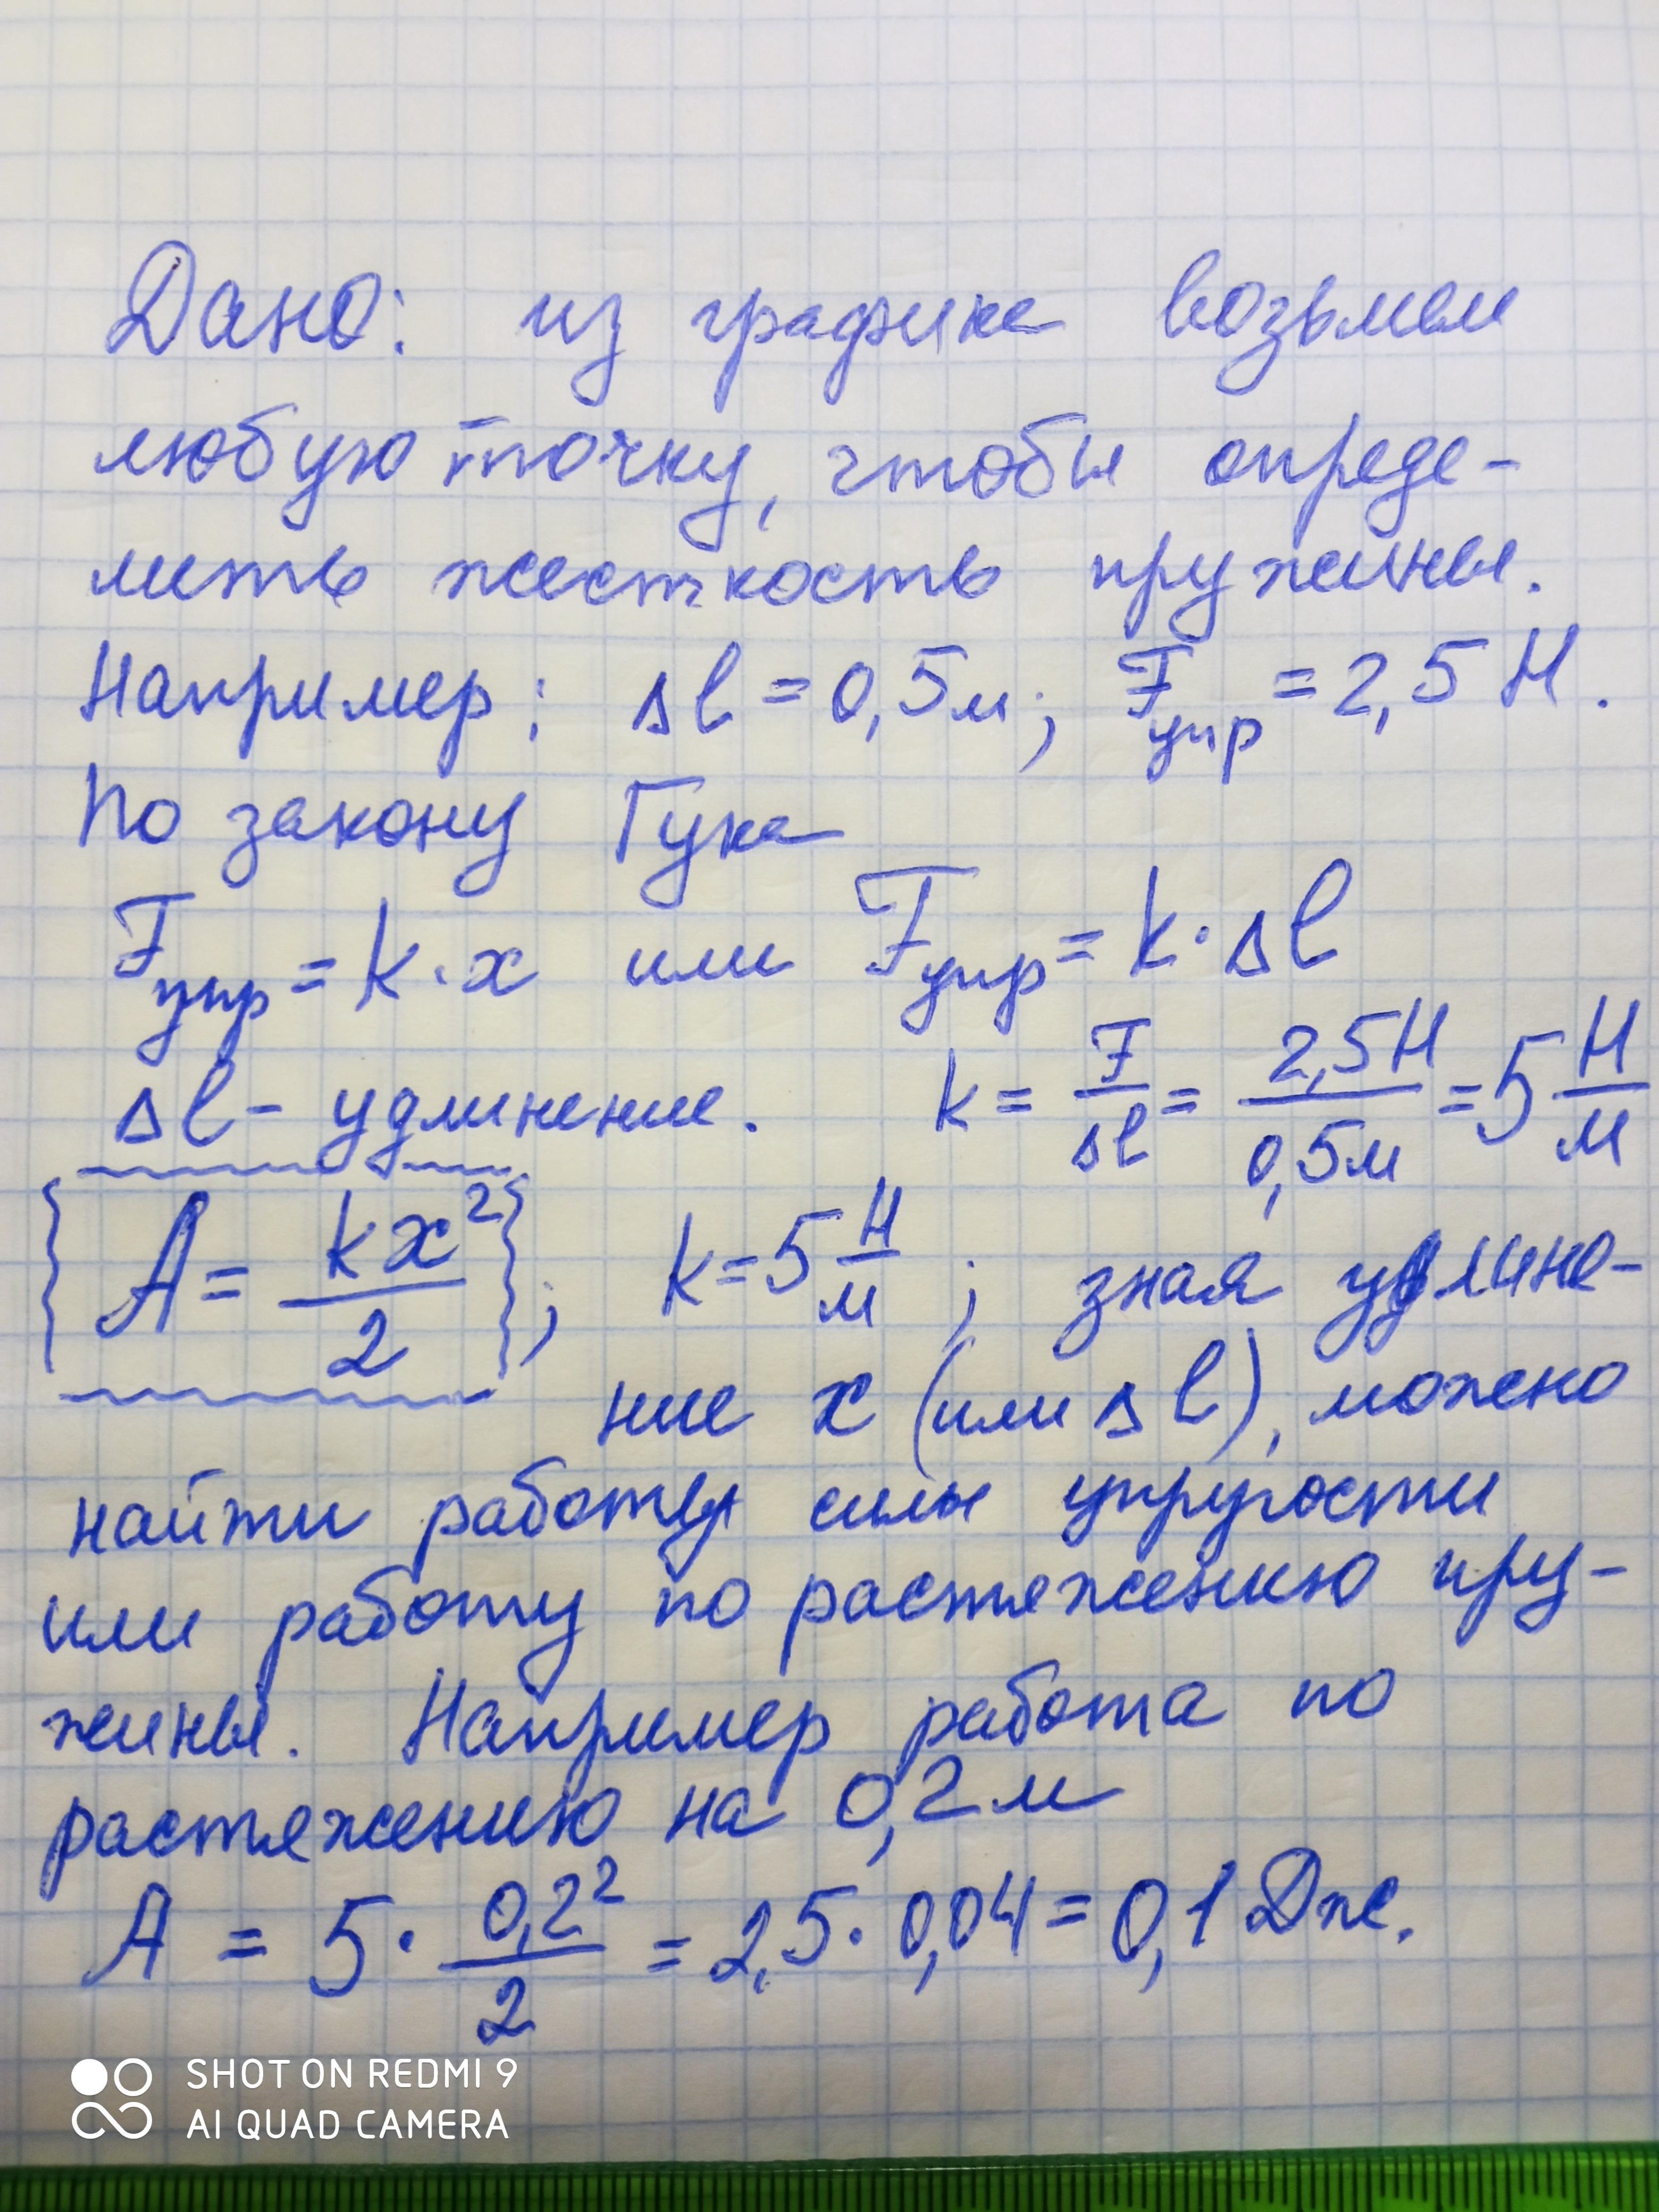 Дано: из графика возьмем
любую точку, чтобы опреде-
лить жесткость пружины.
Например: Δl = 0,5м; Fупр = 2,5 Н.
По закону Гука
Fупр = k·x или Fупр = k·Δl
Δl - удлинение. k = F/Δl = 2,5Н/0,5м = 5 Н/м
A = kx²/2; k = 5 Н/м; зная удлине-
ние x (или Δl), можно
найти работу силы упругости
или работу по растяжению пру-
жины. Например работа по
растяжению на 0,2 м
A = 5 · 0,2²/2 = 2,5 · 0,04 = 0,1 Дж.
SHOT ON REDMI 9
AI QUAD CAMERA